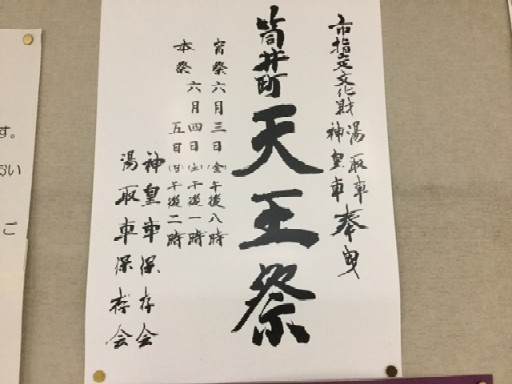 市指定文化財 湯取車 神皇車 奉曳
筒井町 天王祭
宵祭 六月三日(金)午後八時
本祭 六月四日(土)午後一時
五日(日)午後二時
神皇車保存会
湯取車保存会
す。
い
ご